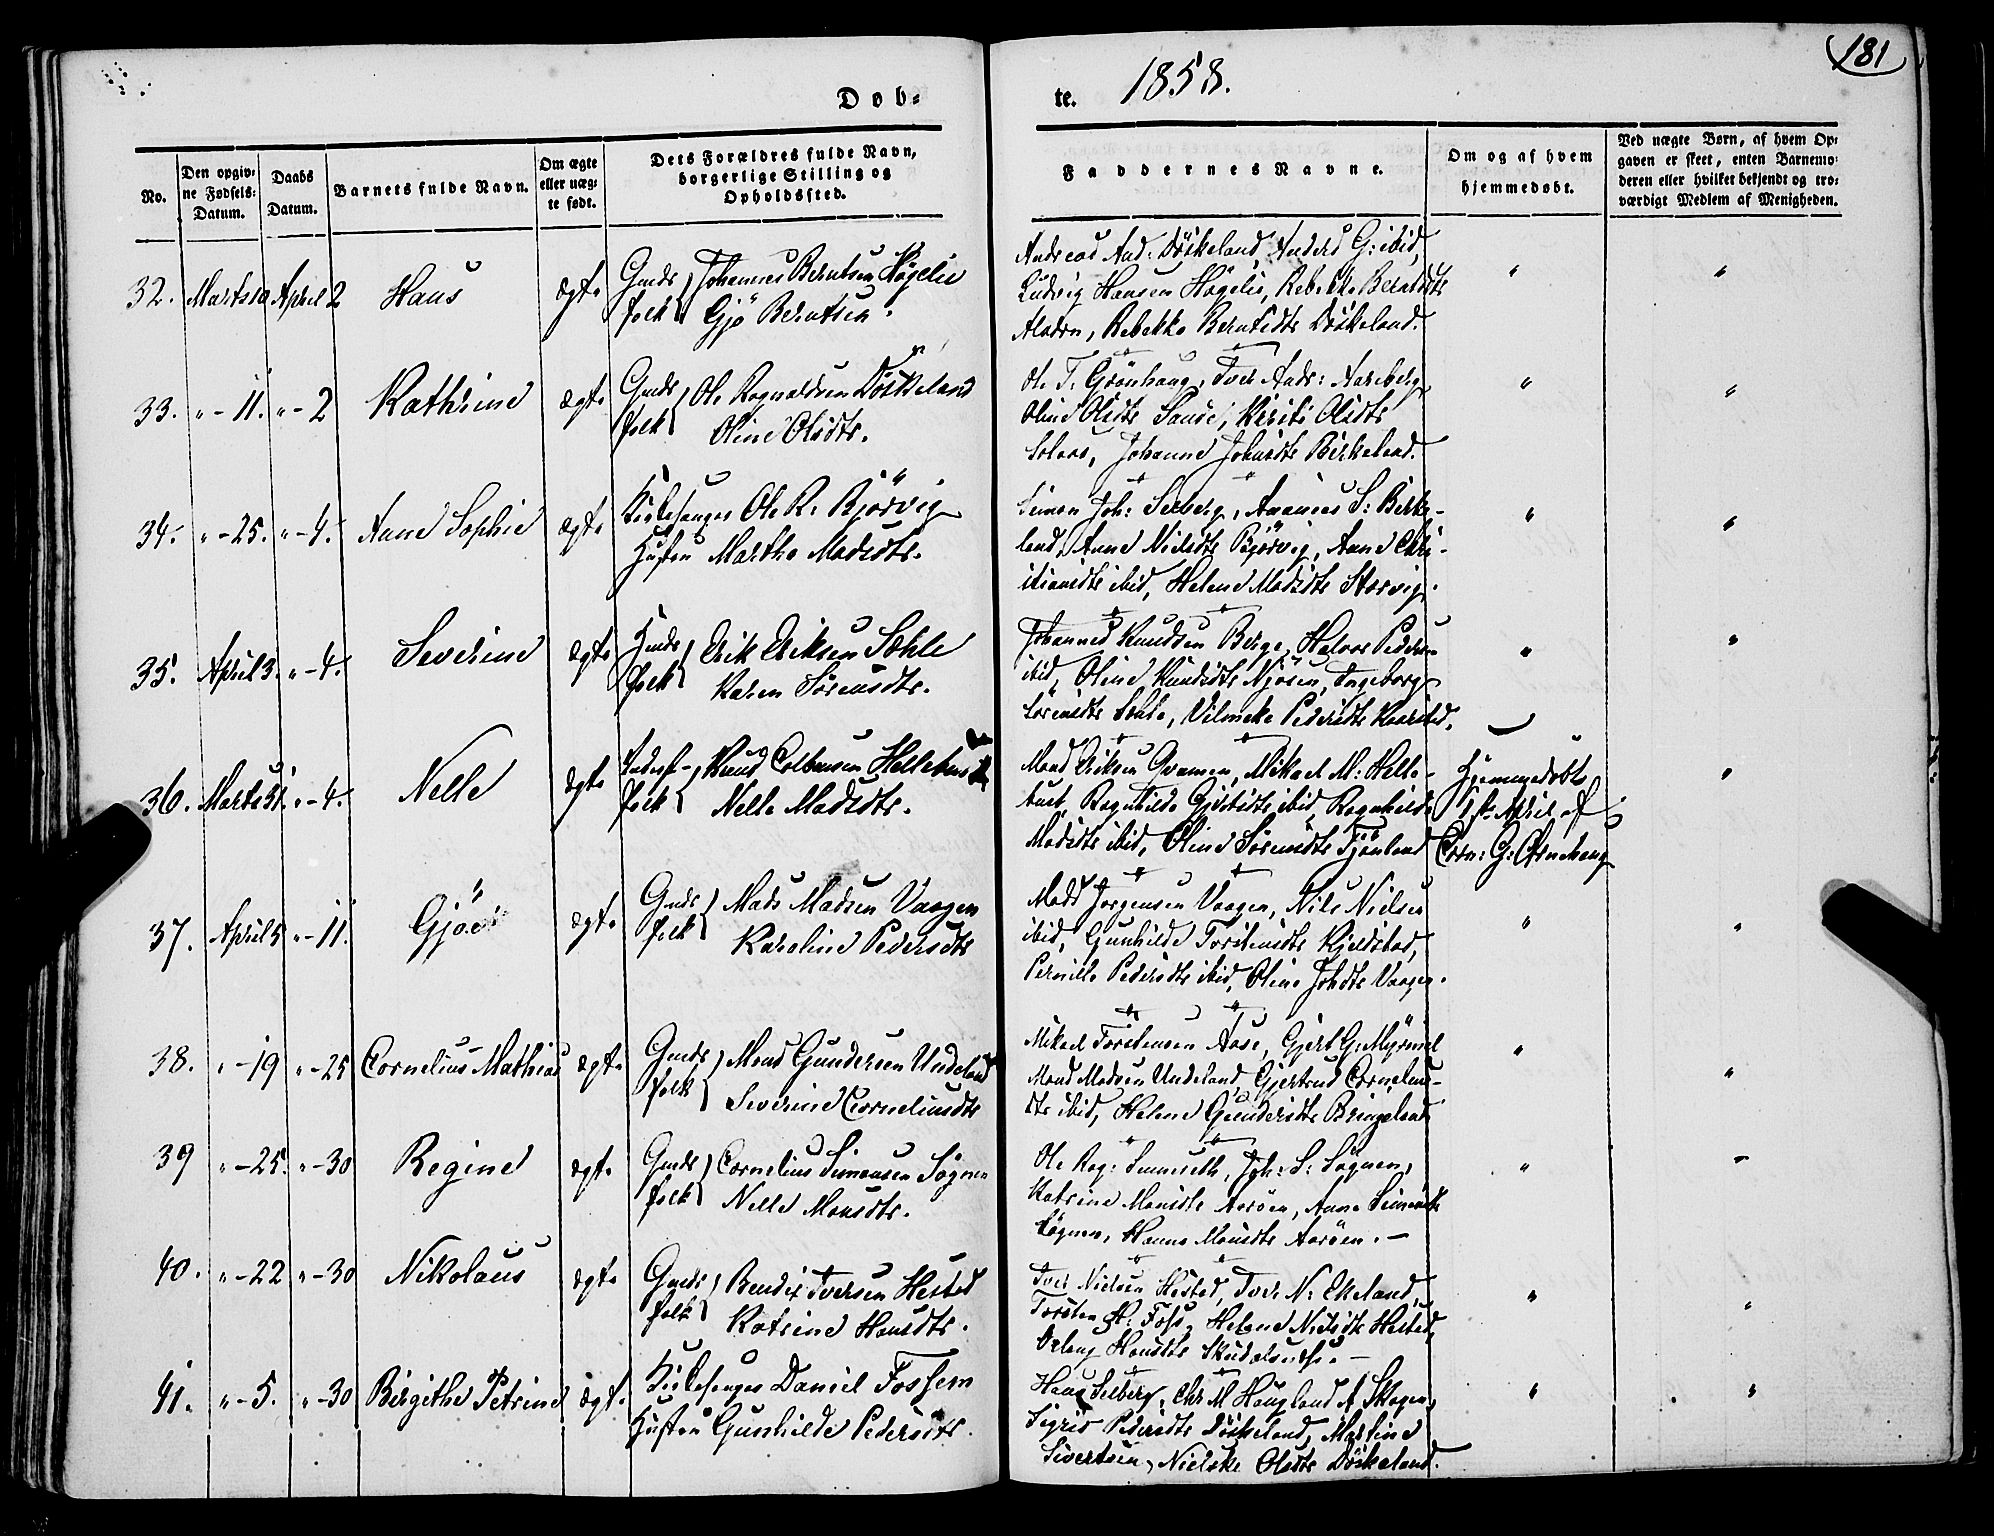 Døb=
te. 1858.
181
No.
Den opgiv=
ne Fødsels=
Datum.
Daabs
Datum.
Barnets fulde Navn.
Om ægte
eller uæg=
te født.
Dets Forældres fulde Navn,
borgerlige Stilling og
Opholdssted.
Faddernes Navne.
Om og af hvem
hjemmedøbt.
Ved uægte Børn, af hvem Op=
gaven er skeet, enten Barnemo=
deren eller hvilket bekjendt og tro=
værdigt Medlem af Menigheden.
32. Marts 10 April 2 Hans ægte Gmds folk Johannes Berntsen Høgelie
Gjø Berntsen.
Andreas And: Döskeland, Anders G: ibid,
Ludvig Hansen Högelie, Rebekke Berntsdtr
Rebekka Berntsdtr Döskeland.
33. " - 11. " - 2 Kathrine ægte Gmds folk Ole Rognaldsen Döskeland
Oline Olsdtr.
Ole T. Grönhaug, Iver Andr: Aareberg,
Oline Olsdtr Sande, Kirsti Olsdtr
Johanne Johansdtr Birkeland.
34. " - 25. " - 4. Anne Sophie ægte Kirkesanger Ole R. Björvig
Hustru Martha Madsdtr.
Simon Joh: Selberg, Ananias S: Birke-
land, Anne Nielsdtr Björvig, Anne Chri-
stiansdtr ibid, Helene Madsdtr Storvig.
35. April 3. " - 4. Severine ægte Hmds folk Erik Eriksen Sæhle
Karen Sörensdtr.
Johannes Knudsen Berge, Halvor Pedersen
ibid, Oline Knudsdtr Njösen, Ingeborg
Sörensdtr Sæhle, Vilmeke Pedersdtr Kaarstad.
36. Marts 31. " - 4. Nelle ægte folk Knud Colbensen Hellebust
Nelle Madsdtr.
Mons Eriksen Qvamen, Mikael M: Helle-
bust, Ragnhilde Gjertsdtr ibid, Ragnhilde
Madsdtr ibid, Oline Sörensdtr Tjönland
Hjemmedøbt
1ste April af
Corn: G:
37. April 5 " - 11. Gjöe ægte Gmds folk Mads Madsen Vaagen
Karoline Pedersdtr
Mads Jörgensen Vaagen, Nils Nielsen
ibid, Gunhilde Torstensdtr Kjelstad,
Pernille Pedersdtr ibid, Oline Johsdtr Vaagen.
38. " - 19 " - 25 Cornelius Mathias ægte Gmds folk Mons Gundersen Undeland
Severine Corneliusdtr
Mikael Torstensen Aase, Gjert G: Myrmel
Mons Madsen Undeland, Gjertrud Cornelius-
dtr ibid, Helene Gundersdtr Bringeland
39 " - 25. " - 30 Regine ægte Gmds folk Cornelius Simonsen Sögnen
Nelle Monsdtr.
Ole Rag: Joh: S: Sögnen,
Katrine Monsdtr Aaröen, Anne Simonsdtr
Sögnen, Hanna Monsdtr Aaröen. -
40. " - 22 " - 30 Nikolaus ægte Gmds folk Bendix Iversen Hestad
Katrine Hansdtr.
Iver Nielsen Hestad, Iver N: Ekeland,
Torsten H: Foss, Helene Nielsdtr Hestad,
Hansdtr
41. " - 5. " - 30 Birgithe Petrine ægt. Kirkesanger Daniel Fossem
Hustru Gunhilde Pedersdtr.
Hans Selberg, Chr M Haugland A Skagen,
Sigrid Pedersdtr Döskeland, Martine
Sivertsen, Nielske Olsdtr Döskeland.